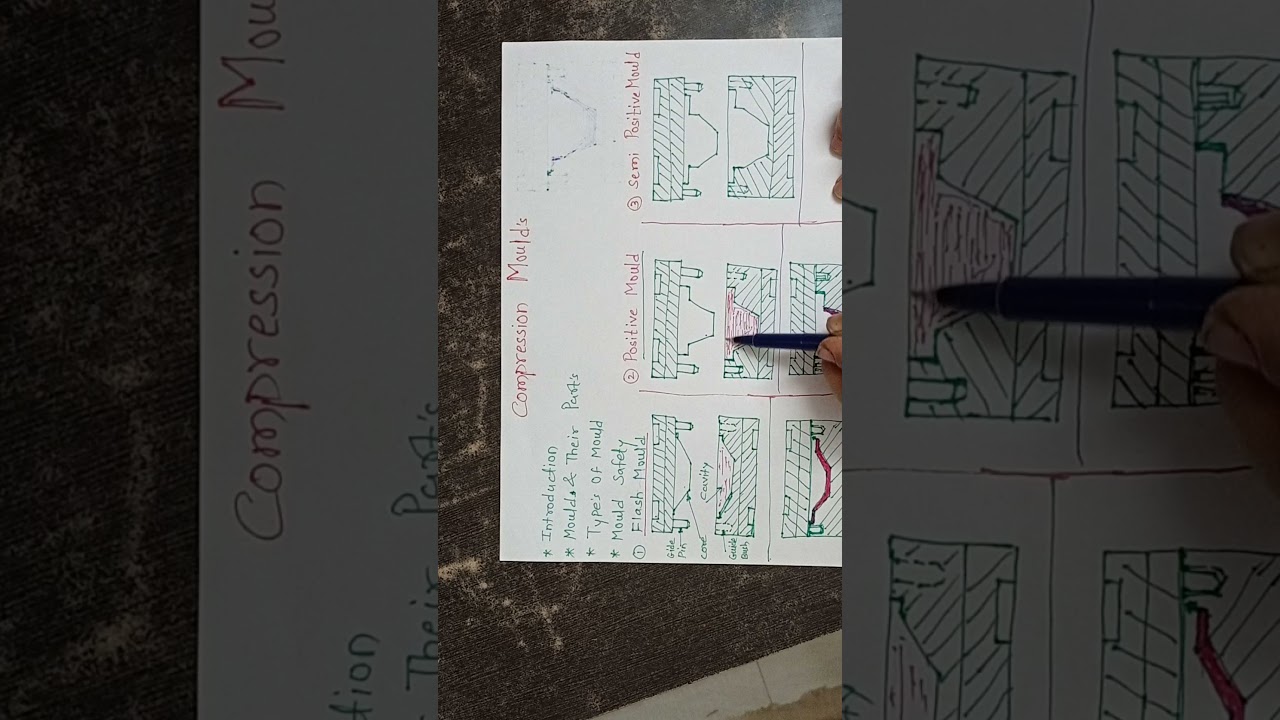 Compression Mould's
* Introduction
* Moulds & Their Part's
* Type's Of Mould
* Mould Safety
① Flash Mould
② Positive Mould
③ Semi Positive Mould
Gide
Pin
core
Cavity
Guide
Bush